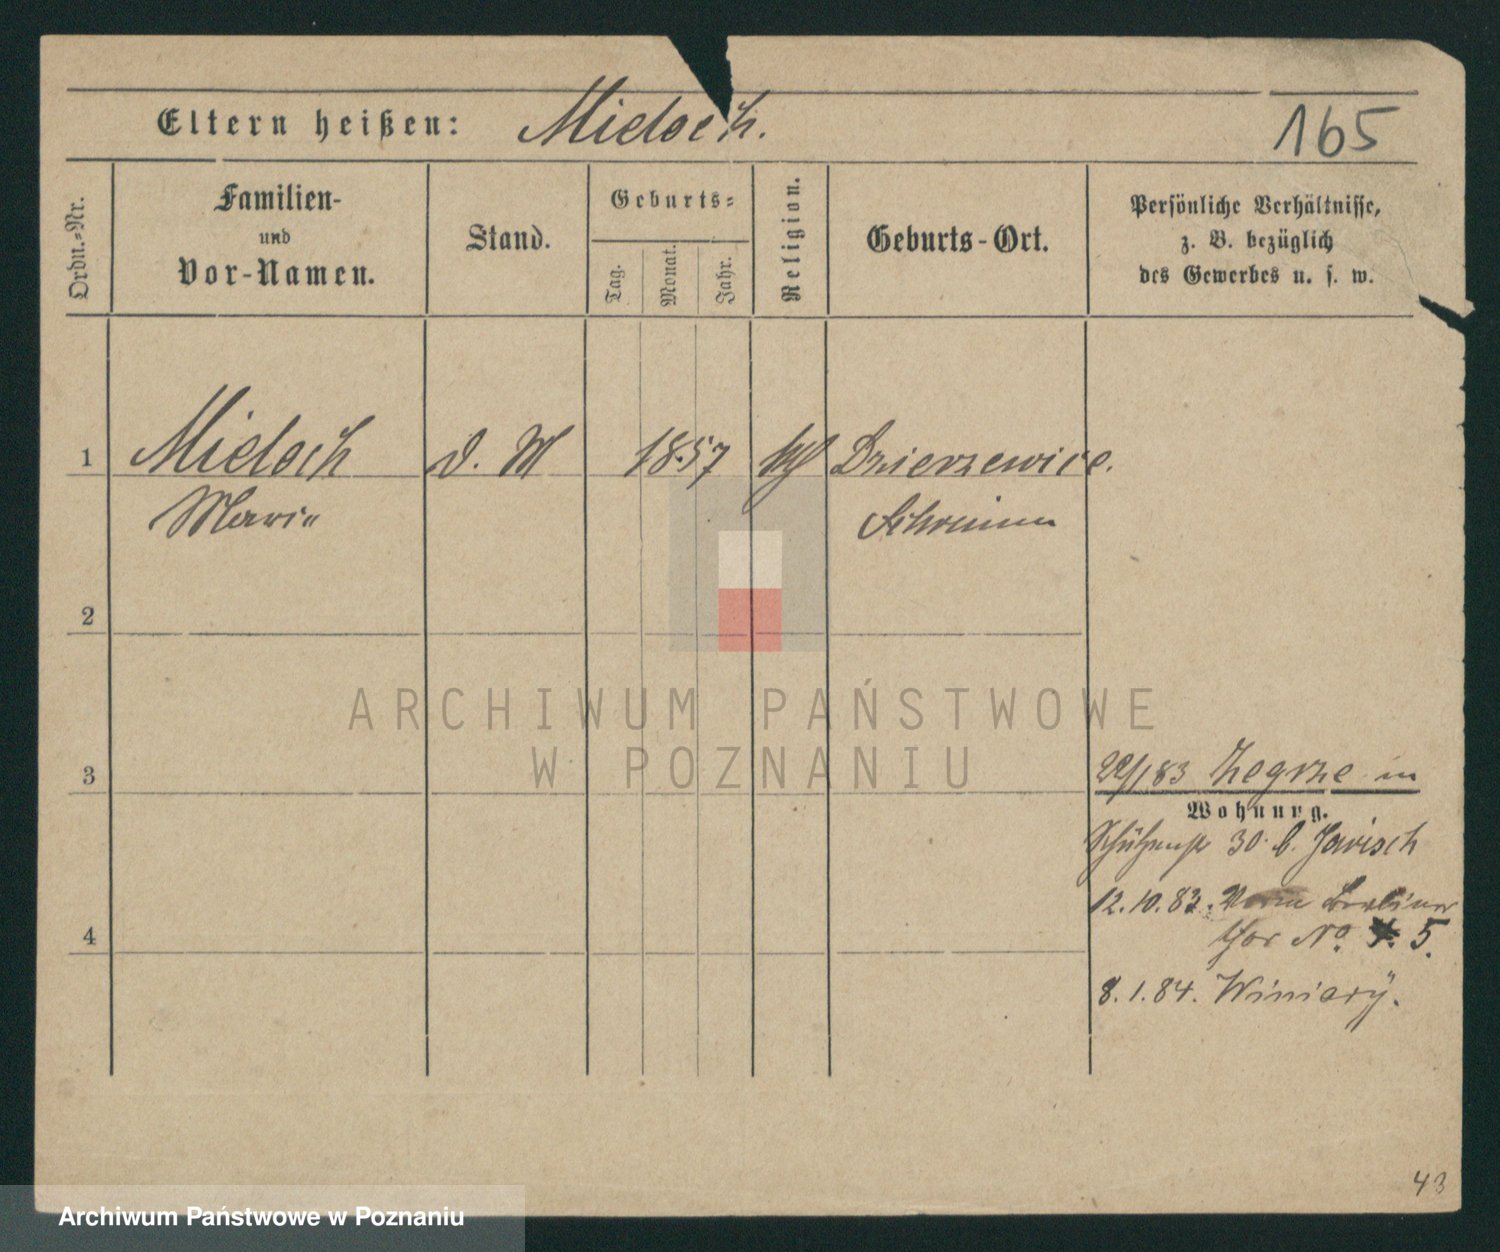 Eltern heißen: Mieloch.
165
Ordn.-Nr.
Familien-
und
Vor-Namen.
Stand.
Geburts-
Tag.
Monat.
Jahr.
Religion.
Geburts-Ort.
Persönliche Verhältnisse,
z. B. bezüglich
des Gewerbes u. s. w.
1 Mieloch d. M 1857 Dzierzewice.
Marie Schrimm
2
ARCHIWUM PAŃSTWOWE
W POZNANIU
3
83 Zegrze in
Wohnung.
30 b. Jarisch
12.10.83. Vorm Berliner
Thor No. 5.
4
8.1.84. Winiary.
43
Archiwum Państwowe w Poznaniu